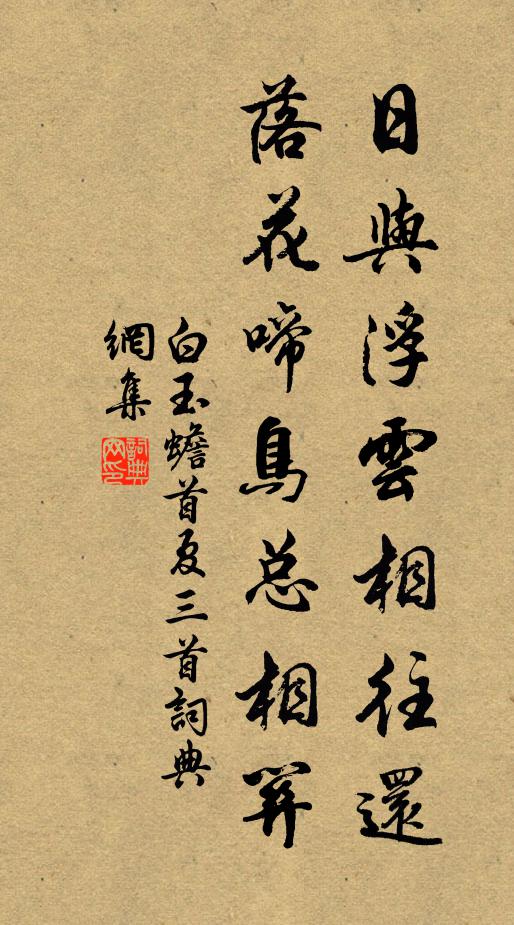 日與浮雲相往還
落花啼鳥总相關
白玉蟾首夏三首詞典
網集
詞典网印